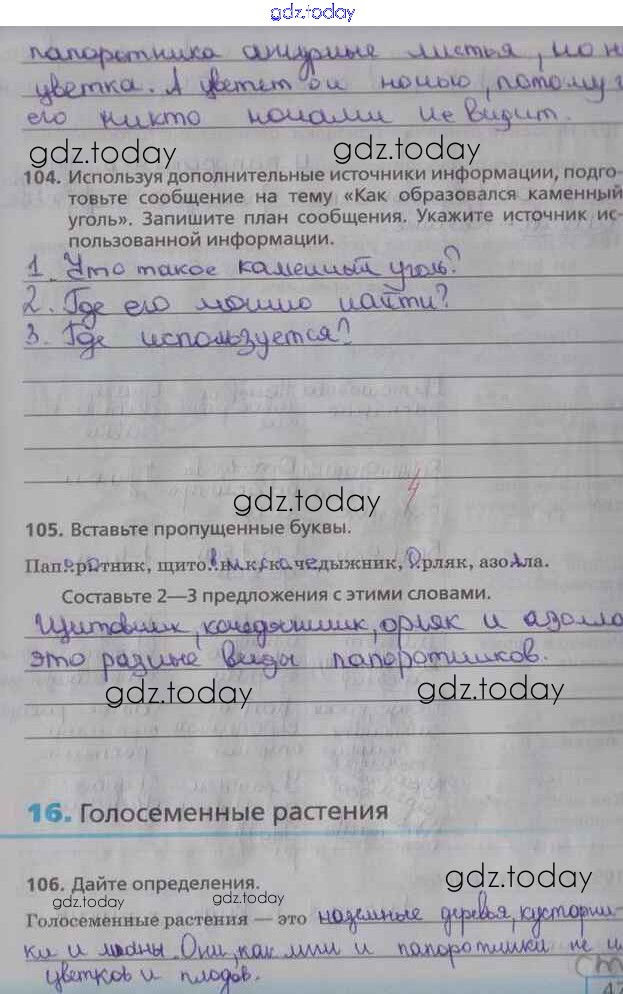 gdz.today
папоротника ажурные листья, но н
цветка. А цветет он ночью, потому ч
его никто ночами не видит.
gdz.today gdz.today
104. Используя дополнительные источники информации, подго-
товьте сообщение на тему «Как образовался каменный
уголь». Запишите план сообщения. Укажите источник ис-
пользованной информации.
1. Что такое каменный уголь?
2. Где его можно найти?
3. Где используется?
4
gdz.today
105. Вставьте пропущенные буквы.
Папоротник, щитовник, кочедыжник, Орляк, азолла.
Составьте 2—3 предложения с этими словами.
Щитовник, кочедыжник, орляк и азолла
это разные виды папоротников.
gdz.today gdz.today
16. Голосеменные растения
gdz.today
106. Дайте определения.
gdz.today gdz.today
Голосеменные растения — это наземные деревья, кустарни-
ки и лианы. Они, как мхи и папоротники не и
цветков и плодов.
gdz.today
47